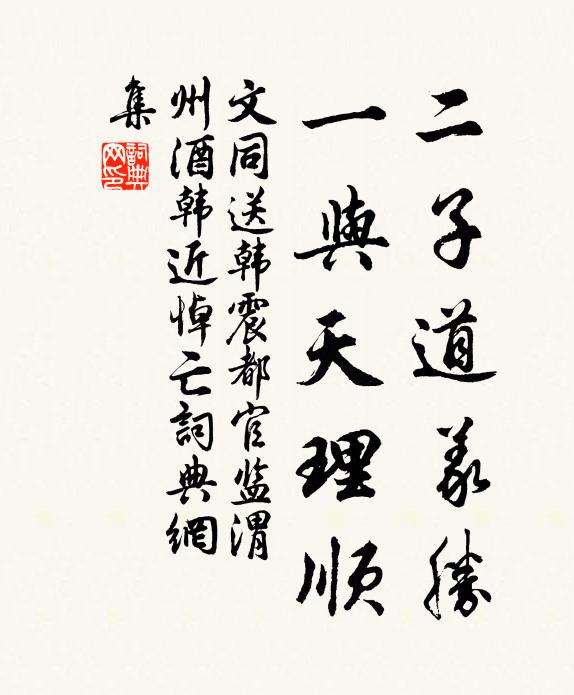 二子道义勝
一與天理順
文同送韩震都官监渭
州酒韩近悼亡詞典網
集
詞典
网印